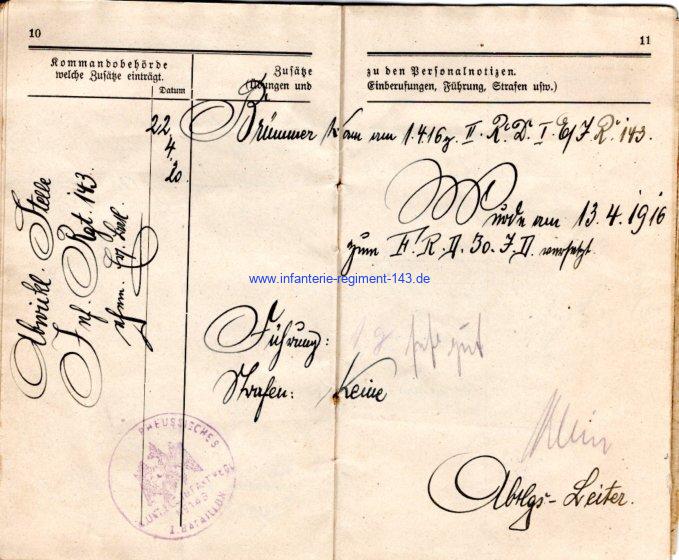 10
11
Kommandobehörde
welche Zusätze einträgt.
Datum
Zusätze zu den Personalnotizen.
(Übungen und Einberufungen, Führung, Strafen usw.)
22.
4.
20.
Abwickl. Stelle
Inf. Rgt. 143
Brümmer kam am 1.4.16 z. II. R. D. I. E/J. R. 143.
Wurde am 13.4.1916
zum F. R. D. 30. J. D. versetzt.
www.infanterie-regiment-143.de
Führung: sehr gut
Strafen: Keine
Klein
Abtlgs-Leiter.
PREUSSISCHES
I. BATAILLON